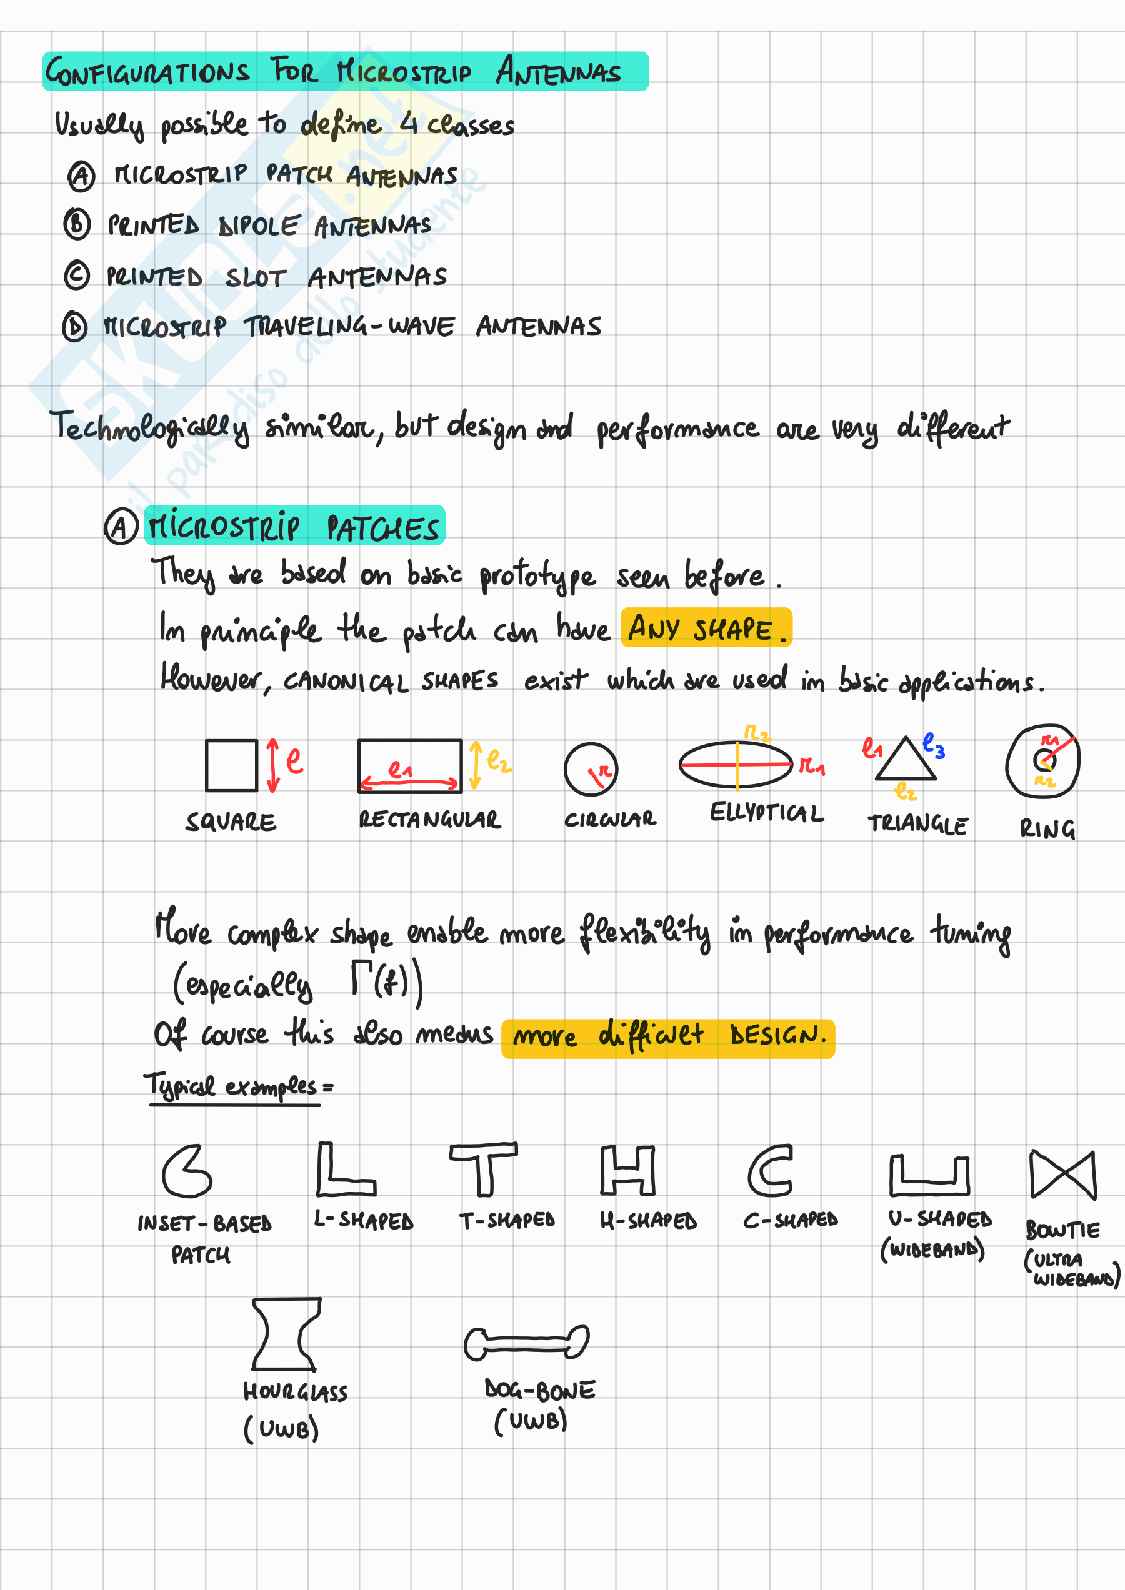 CONFIGURATIONS FOR MICROSTRIP ANTENNAS
Usually possible to define 4 classes
A MICROSTRIP PATCH ANTENNAS
B PRINTED DIPOLE ANTENNAS
C PRINTED SLOT ANTENNAS
D MICROSTRIP TRAVELING-WAVE ANTENNAS
Technologically similar, but design and performance are very different
A MICROSTRIP PATCHES
They are based on basic prototype seen before.
In principle the patch can have ANY SHAPE.
However, CANONICAL SHAPES exist which are used in basic applications.
l l1 l2 r r2 r1 l1 l3 l2 r1 r2
SQUARE RECTANGULAR CIRCULAR ELLYPTICAL TRIANGLE RING
More complex shape enable more flexibility in performance tuning
(especially Γ(f))
Of course this also means more difficult DESIGN.
Typical examples=
INSET-BASED PATCH L-SHAPED T-SHAPED H-SHAPED C-SHAPED U-SHAPED (WIDEBAND) BOWTIE (ULTRA WIDEBAND)
HOURGLASS (UWB) DOG-BONE (UWB)
SKUOLA.net
il paradiso dello studente